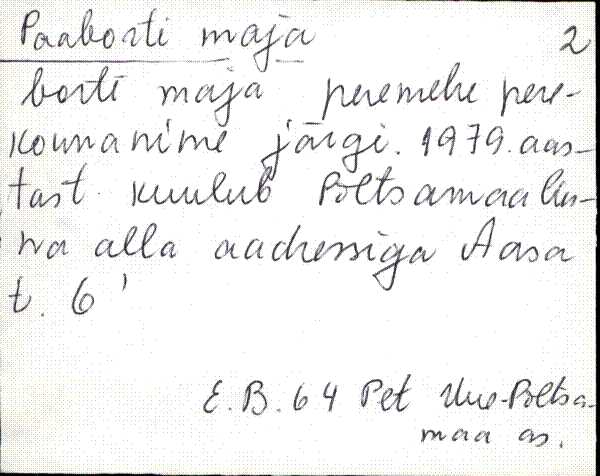 Paaborti maja 2
borti maja peremehe pere-
konnanime järgi. 1979. aas-
tast kuulub Põltsamaa lin-
na alla aadressiga Aasa
t. 6'
E. B. 64 Pet Uue-Põltsa-
maa as.